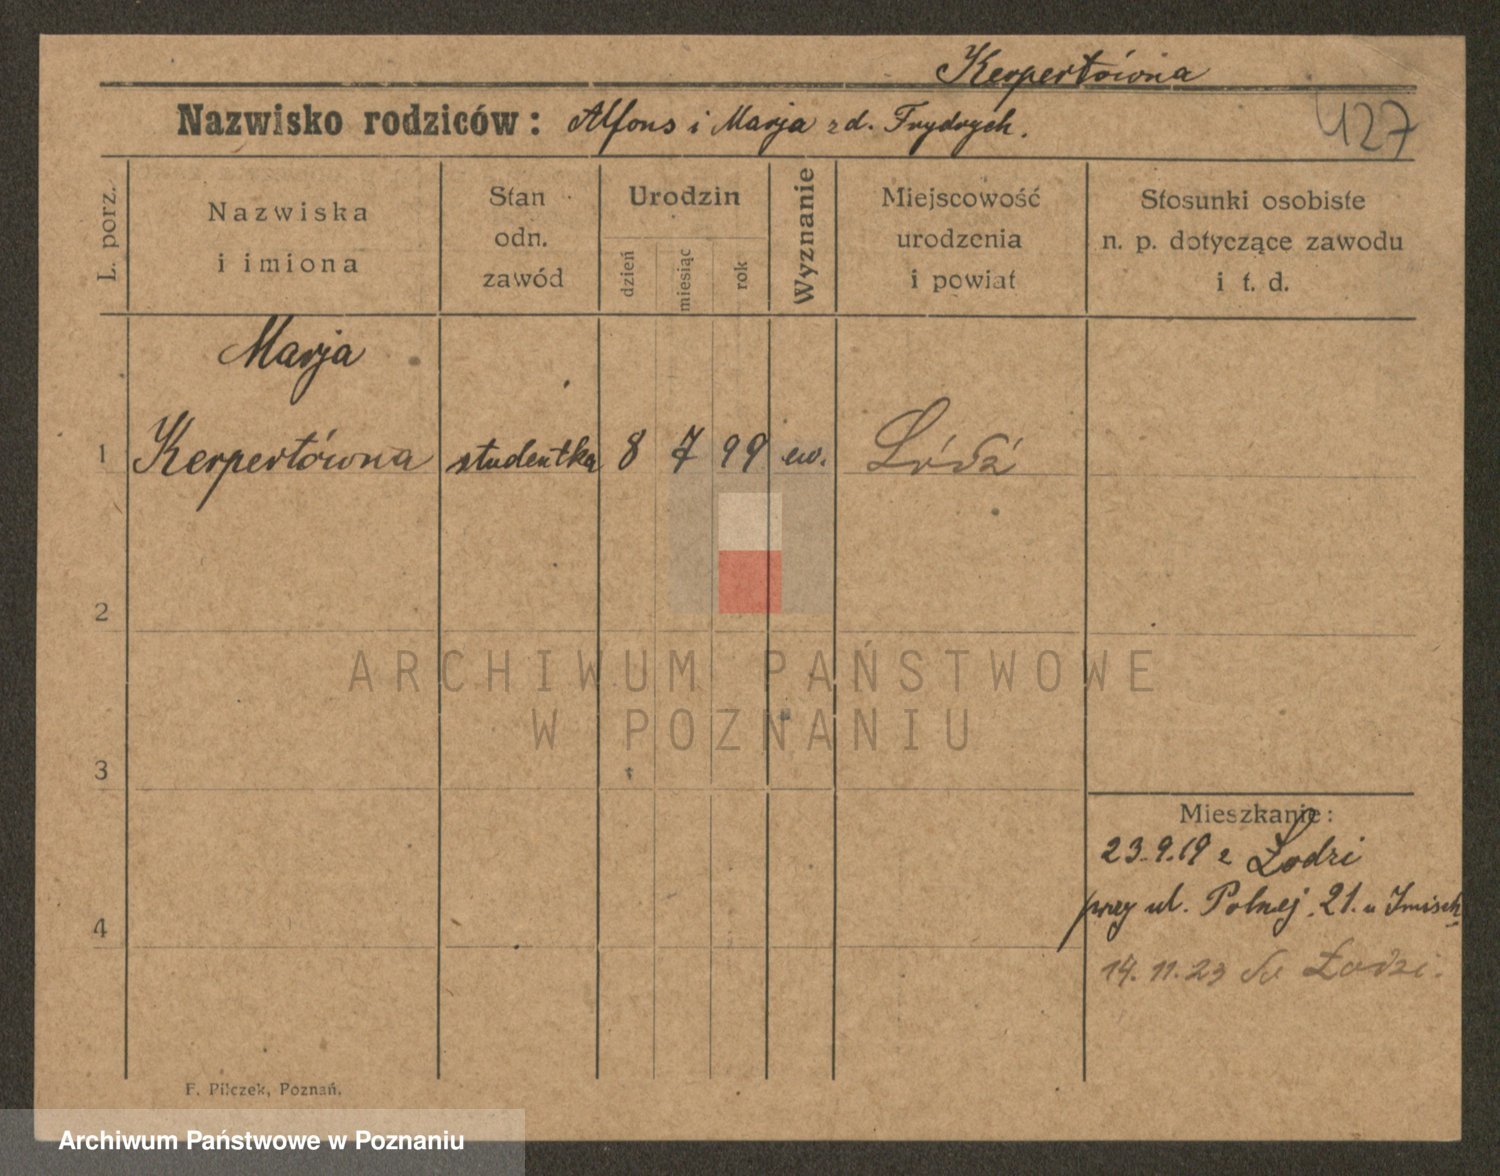 Kerpertówna
Nazwisko rodziców: Alfons i Marja zd. Frydrych.
427
L. porz.
Nazwiska
i imiona
Stan
odn.
zawód
Urodzin
dzień
miesiąc
rok
Wyznanie
Miejscowość
urodzenia
i powiat
Stosunki osobiste
n. p. dotyczące zawodu
i t. d.
Marja
1 Kerpertówna studentka 8 7 99 ew. Łódź
2
ARCHIWUM PAŃSTWOWE
W POZNANIU
3
Mieszkanie:
23.9.19 z Łodzi
przy ul. Polnej 21. u Imisch
4
14.11.23 do Łodzi.
F. Pilczek, Poznań.
Archiwum Państwowe w Poznaniu